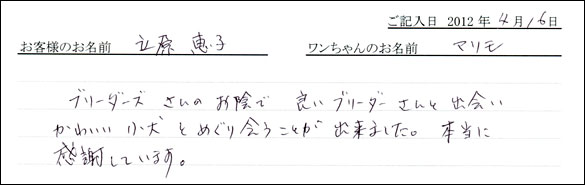 ご記入日 2012年4月16日
お客様のお名前 立原 恵子 ワンちゃんのお名前 マリモ
ブリーダーズ さんの お陰で 良い ブリーダー さんと 出会い
かわいい 小犬 と めぐり会うことが 出来ました。本当に
感謝しています。